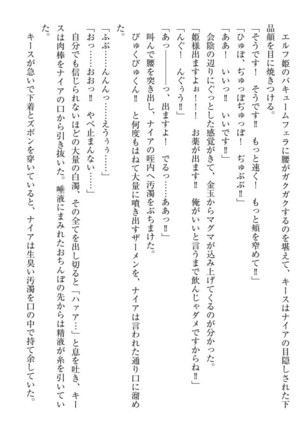 エルフ姫のバキュームフェラに腰がガクガクするのを堪えて、キースはナイアの下
品顔を目に焼きつける。
「そうです！　そうです‼　もっと速く！　もっと頰を窄めて‼」
「ひゅぼ、ぢゅっぽぢゅっぽ‼　ぢゅぶぶ‼」
「ああ！　いいっ‼　いいです‼」
会陰の辺りにぐっとした感覚がきて、金玉からマグマが込み上げてくるのが分かった。
「姫様出ますよぉ‼！　お薬が出ます‼　俺がいいと言うまで飲んじゃダメですからね‼」
「んぐ！　んぐうう‼」
「あっ……っ、出ますよ！　でるっ……ああっ‼」
叫んで腰を突き出し、ナイアの咥内へ汚濁をぶちまけた。
びゅくびゅくん‼　と何度もはねて大量に噴き出すザーメンを、ナイアは言われた通り口に溜め
「ふぶっ……んんんっ……えぅぅぅ……」
「おっ……おおっ‼　やべ止まんない……」
自分でも信じられないほどの大量の白濁、その全てを出し切ると「ハァァ…」と息を吐き、キー
スは肉棒をナイアの口から引き抜いた。唾液にまみれたおちんぽの先からは精液が糸を引いてい
キースが急いで下着とズボンを穿いていると、ナイアは生臭い汚濁を口の中で持て余していた。